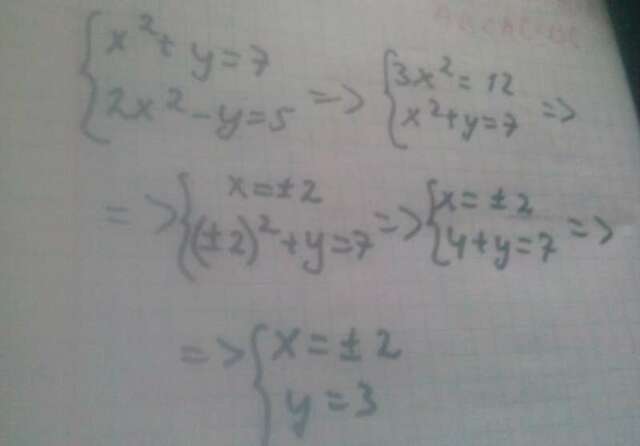 {x²+y=7
{2x²-y=5 => {3x²=12
{x²+y=7 =>
=> {x=±2
{(±2)²+y=7 => {x=±2
{4+y=7 =>
=> {x=±2
{y=3